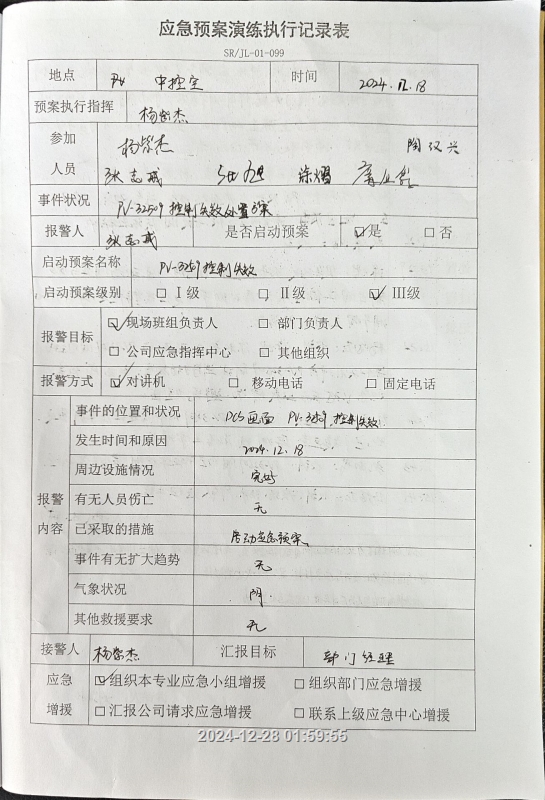 应急预案演练执行记录表
SR/JL-01-099
地点 中控室 时间 2024.12.18
预案执行指挥 杨紫杰
参加人员 杨紫杰 陶仅兴
张志成 徐熠
事件状况 PV-32509控制失效处置方案
报警人 张志成 是否启动预案 ☑是 □否
启动预案名称 PV-3259控制失效
启动预案级别 □Ⅰ级 □Ⅱ级 ☑Ⅲ级
报警目标 ☑现场班组负责人 □部门负责人
□公司应急指挥中心 □其他组织
报警方式 ☑对讲机 □移动电话 □固定电话
报警内容 事件的位置和状况 DCS画面 控制失效
发生时间和原因 2024.12.18
周边设施情况 完好
有无人员伤亡 无
已采取的措施 启动应急预案
事件有无扩大趋势 无
气象状况 阴
其他救援要求 无
接警人 杨紫杰 汇报目标 部门经理
应急增援 ☑组织本专业应急小组增援 □组织部门应急增援
□汇报公司请求应急增援 □联系上级应急中心增援
2024-12-28 01:59:55